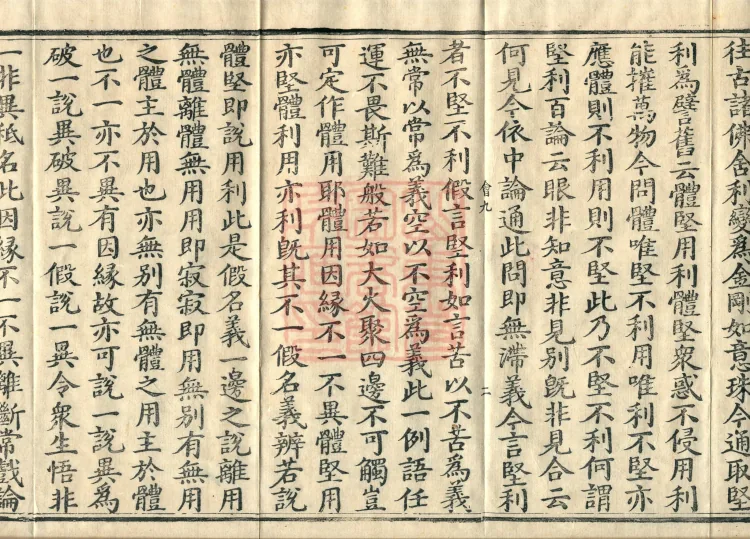 往古諸佛舍利變為金剛如意珠今通取堅
利為譬舊云體堅用利體堅衆惑不侵用利
能摧萬物今問體唯堅不利用唯利不堅亦
應體則不利用則不堅此乃不堅不利何謂
堅利百論云眼非知意非見別既非見合云
何見今依中論通此問即無滯義今言堅利
會九
二
者不堅不利假言堅利如言苦以不苦為義
無常以常為義空以不空為義此一例語任
運不畏斯難般若如大火聚四邊不可觸豈
可定作體用耶體用因緣不一不異體堅用
亦堅體利用亦利既其不一假名義辨若說
體堅即說用利此是假名義一邊之說離用
無體離體無用用即寂寂即用無別有無用
之體主於用也亦無別有無體之用主於體
也不一亦不異有因緣故亦可說一說異為
破一說異破異說一假說一異令衆生悟非
一非異秖名此因緣不一不異離斷常戲論